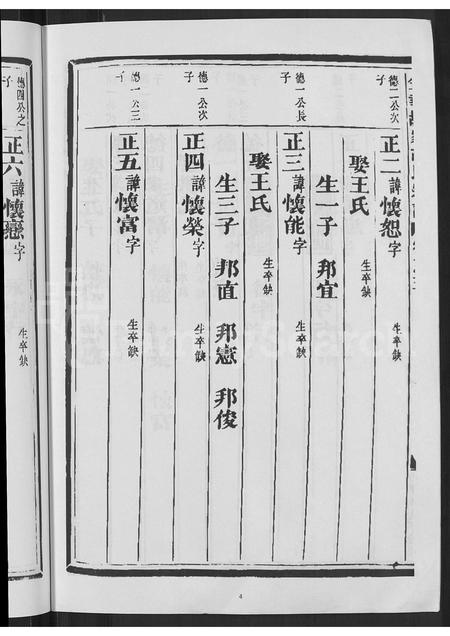 德二公次子
正二諱懷恕字
生卒缺
娶王氏
生卒缺
生一子 邦宜
德一公長子
正三諱懷能字
生卒缺
娶王氏
生卒缺
生三子 邦直 邦憲 邦俊
德一公次子
正四諱懷榮字
生卒缺
德一公三子
正五諱懷富字
生卒缺
德四公之子
正六諱懷戀字
生卒缺
4